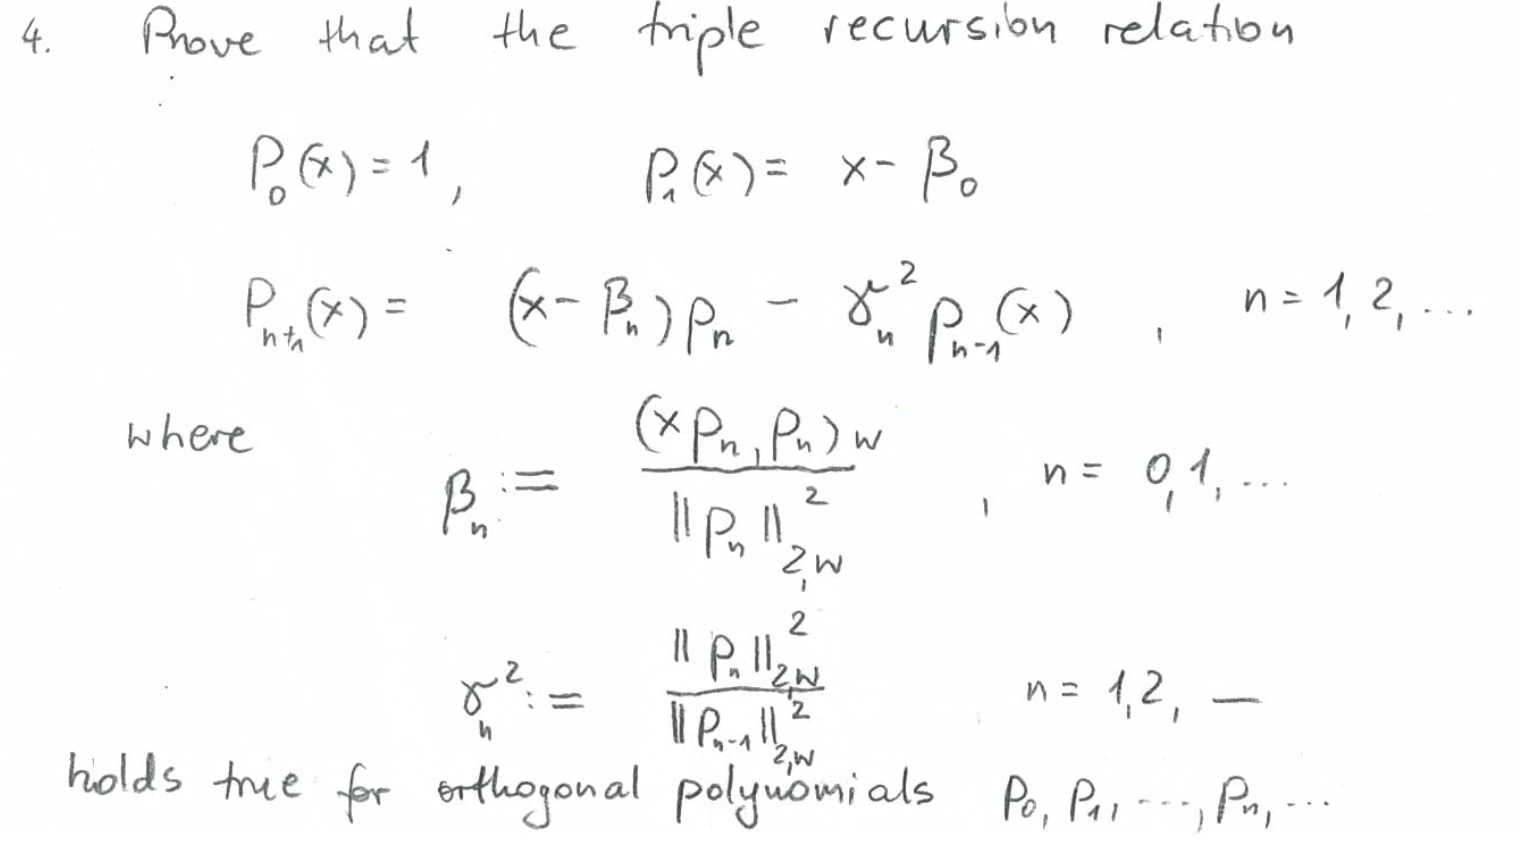 4. Prove that the triple recursion relation
P₀(x) = 1, P₁(x) = x - β₀
Pₙ₊₁(x) = (x - βₙ) pₙ - γₙ² pₙ₋₁(x), n = 1, 2, ...
where βₙ := (x pₙ, pₙ)w / ||pₙ||²₂,w, n = 0, 1, ...
γₙ² := ||pₙ||²₂,w / ||pₙ₋₁||²₂,w n = 1, 2, —
holds true for orthogonal polynomials p₀, p₁, ..., pₙ, ...